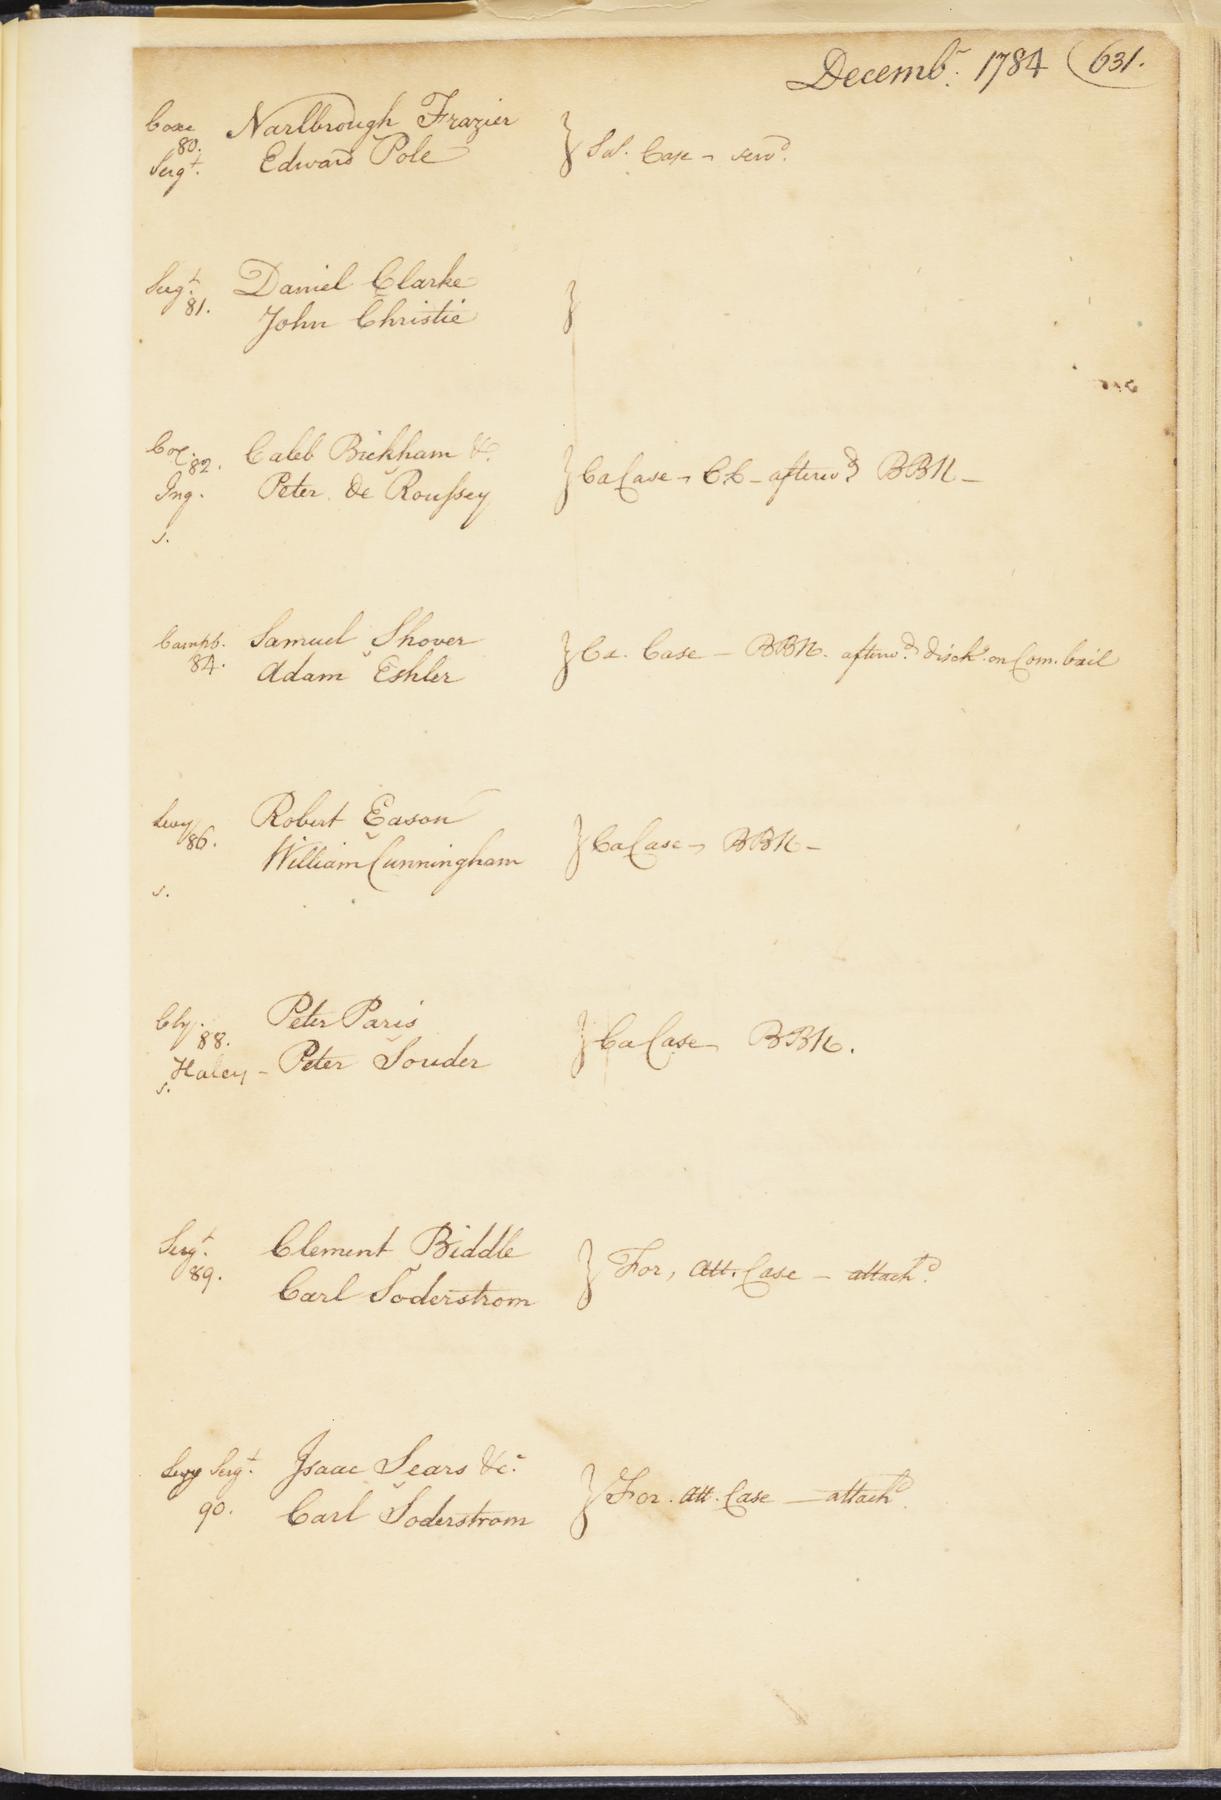 Decembr. 1784 (631.
Coxe Narlbrough Frazier
80.
Sergt. Edward Pole } Sal. Case - servd.
Sergt. Daniel Clarke
81. John Christie }
Cox. Caleb Bickham &c.
82.
Ing. Peter De Roussey } Ca Case - C.C - afterwd BBN -
s.
Campb. Samuel Shover
84. Adam Eshler } Ca. Case - BBN. afterwd. disch. on Com. bail
Levy Robert Eason
86. William Cunningham } Ca Case - BBN -
s.
Cly. Peter Paris
88.
Haley - Peter Souder } Ca Case - BBN.
s.
Sergt. Clement Biddle
89. Carl Soderstrom } For, Att. Case - attachd.
Levy Sergt. Isaac Sears &c.
90. Carl Soderstrom } For. Att. Case - attachd.